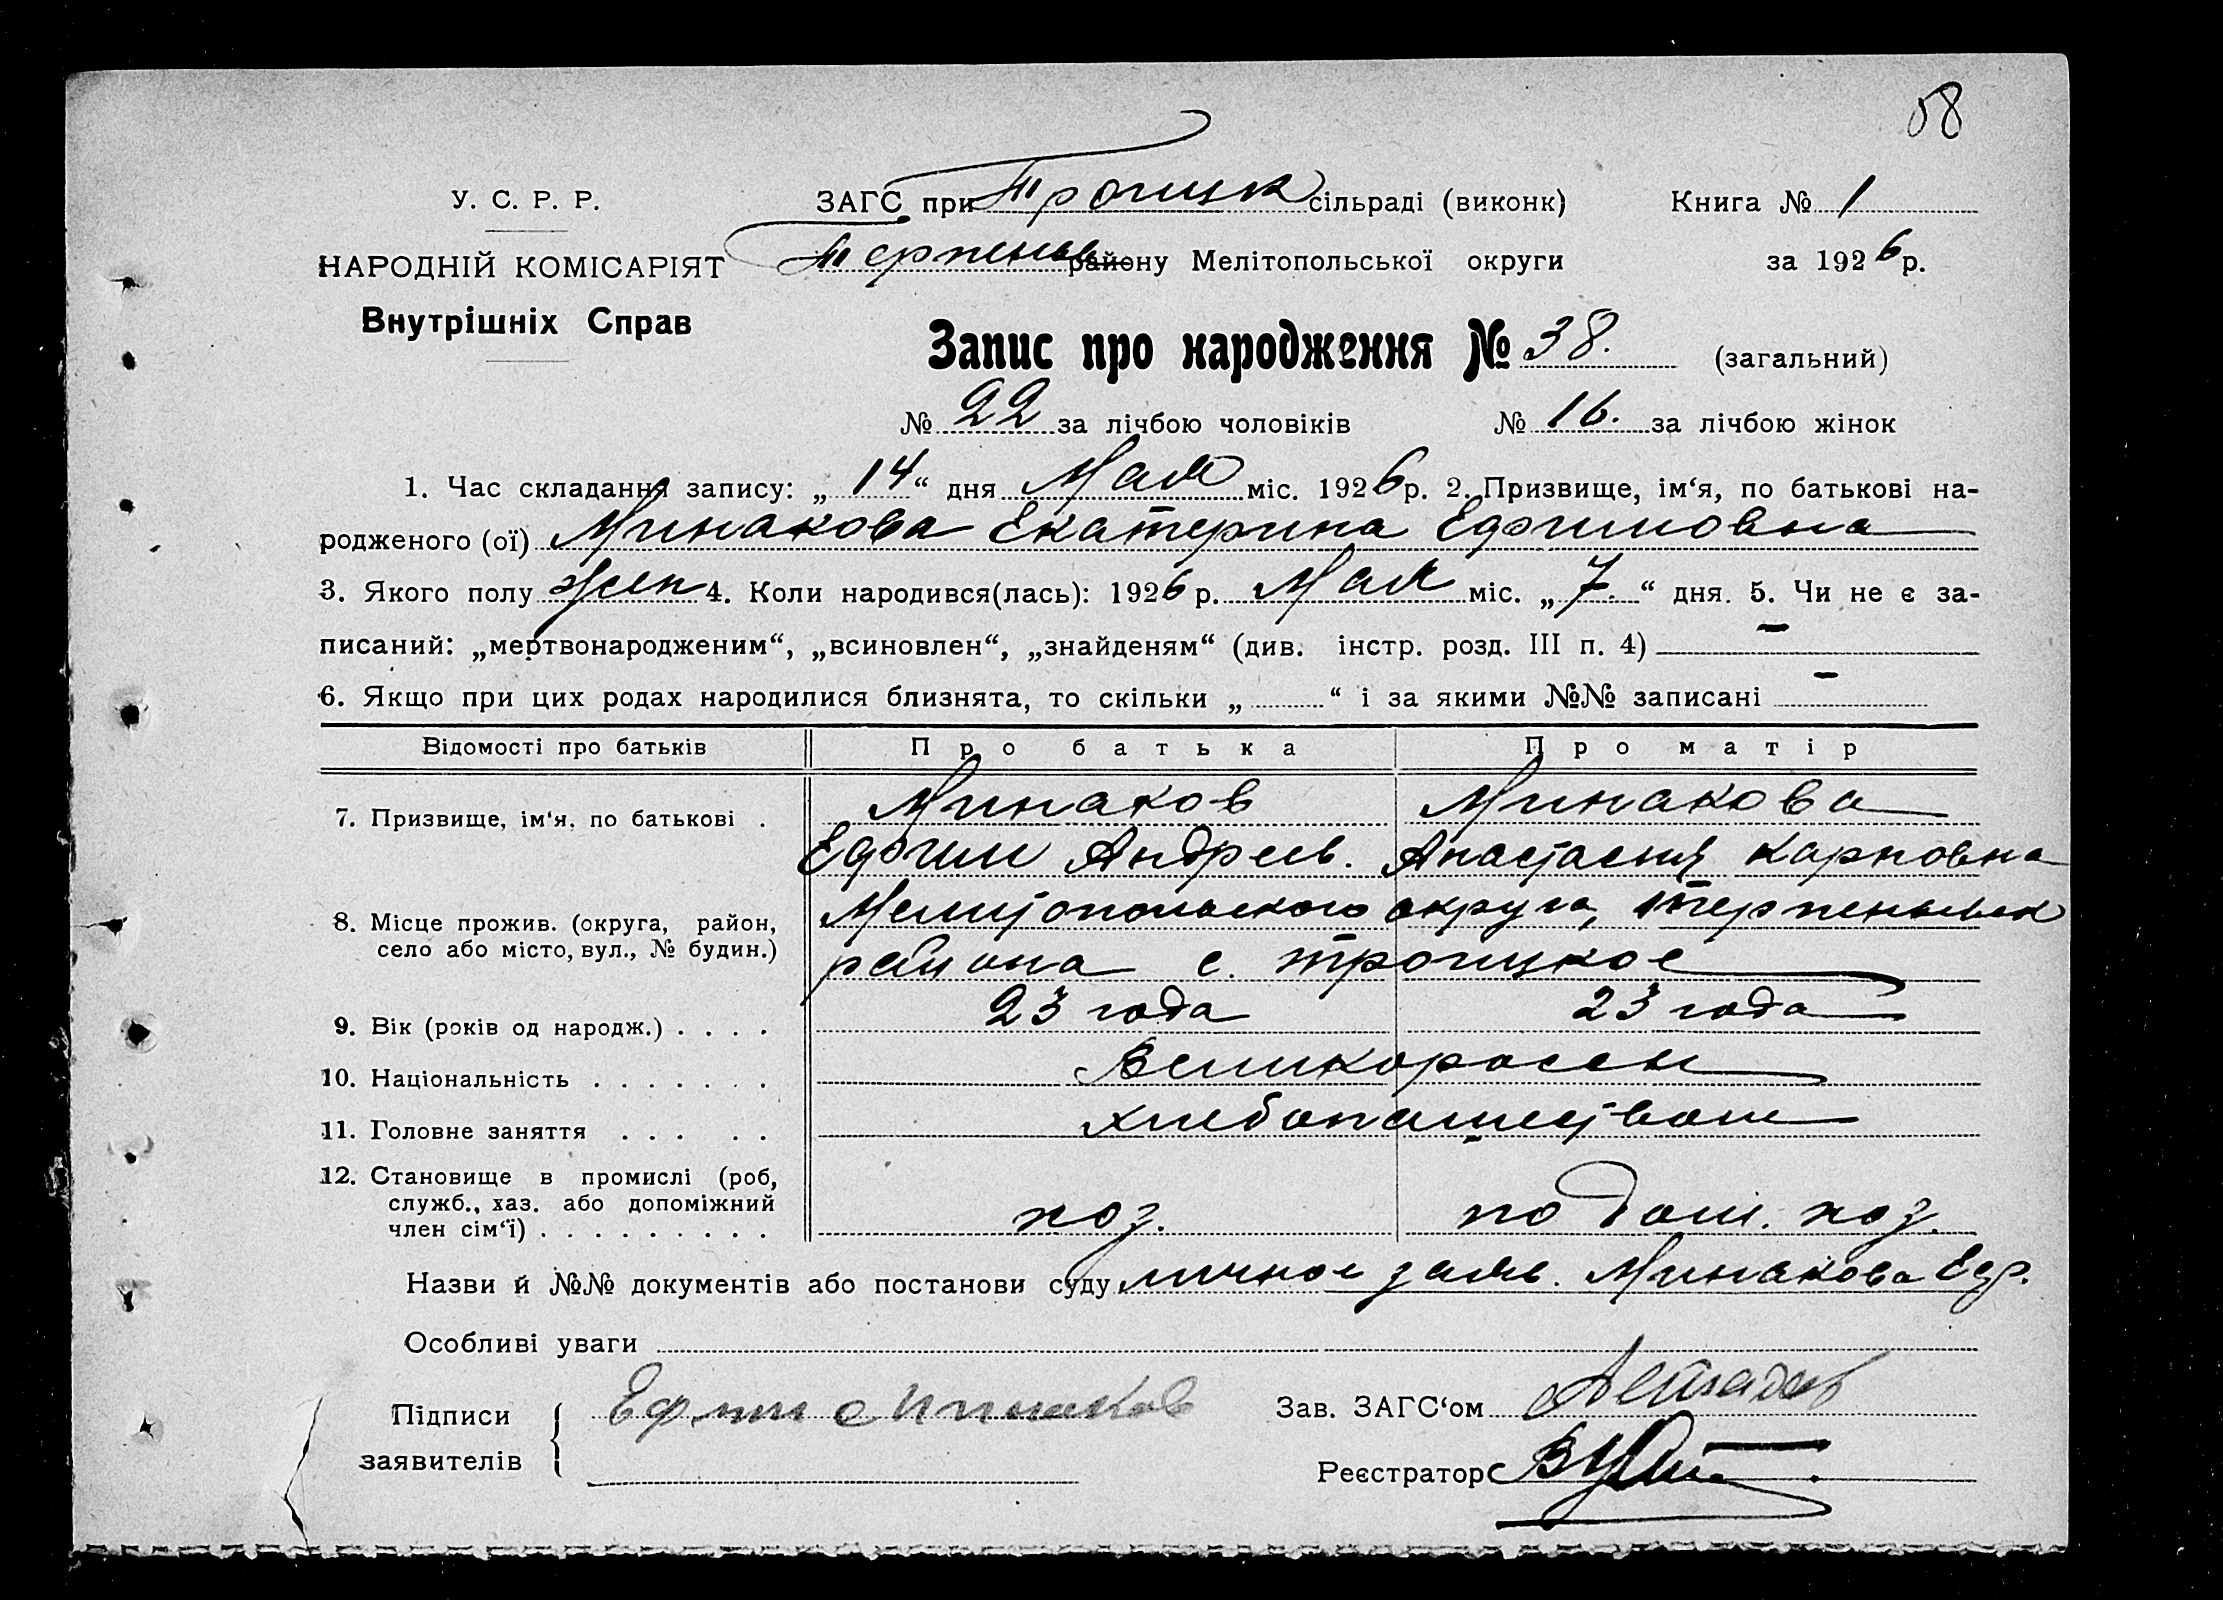 58
У. С. Р. Р.
ЗАГС при Троицк сільраді (виконк)
Книга № 1
НАРОДНІЙ КОМІСАРІЯТ
Терпеньев району Мелітопольської округи
за 1926 р.
Внутрішніх Справ
Запис про народження № 38. (загальний)
№ 22 за лічбою чоловіків № 16. за лічбою жінок
1. Час складання запису: „ 14 “ дня Мая міс. 1926 р. 2. Призвище, ім‘я, по батькові на-
родженого (ої) Минакова Екатерина Ефимовна
3. Якого полу жен 4. Коли народився(лась): 1926 р. Мая міс. „ 7. “ дня. 5. Чи не є за-
писаний: „мертвонародженим“, „всиновлен“, „знайденям“ (див. інстр. розд. III п. 4) —
6. Якщо при цих родах народилися близнята, то скільки „ “ і за якими №№ записані —
Відомості про батьків Про батька Про матір
7. Призвище, ім‘я, по батькові . Минаков Минакова
Ефим Андреев. Анастасия Карповна
8. Місце прожив. (округа, район,
село або місто, вул., № будин.)
Мелитопольского округа, Терпеньевск
района с. Троицкое
9. Вік (років од народж.) . . . . 23 года 23 года
10. Національність . . . . . . . Великороссы
11. Головне заняття . . . . . хлебопашеством
12. Становище в промислі (роб,
служб., хаз. або допоміжний
член сім‘ї) . . . . . . . . . хоз. по дом. хоз.
Назви й №№ документів або постанови суду личное заяв. Минакова Еф.
Особливі уваги
Підписи
заявителів
Ефим Минаков
Зав. ЗАГС‘ом
Реєстратор